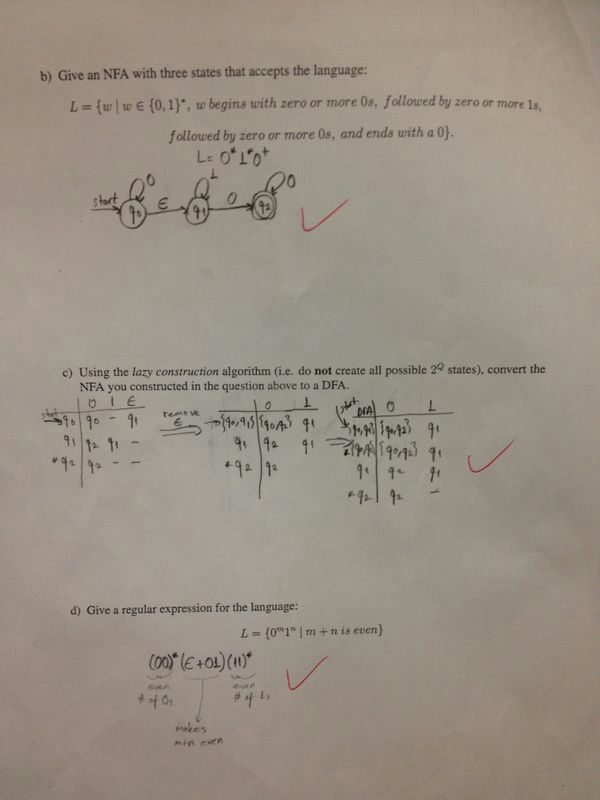 b) Give an NFA with three states that accepts the language:
L = {w | w ∈ {0, 1}*, w begins with zero or more 0s, followed by zero or more 1s,
followed by zero or more 0s, and ends with a 0}.
L = 0* 1* 0+
0 1 0
start q0 ε q1 0 q2
c) Using the lazy construction algorithm (i.e. do not create all possible 2^Q states), convert the
NFA you constructed in the question above to a DFA.
0 1 ε
start → q0 q0 - q1
q1 q2 q1 -
* q2 q2 - -
remove ε
0 1
→ {q0,q1} {q0,q2} q1
q1 q2 q1
* q2 q2
start DFA 0 1
{q0,q1} {q0,q2} q1
{q0,q2} q1
q1 q2 q1
* q2 q2 -
d) Give a regular expression for the language:
L = {0^m 1^n | m + n is even}
(00)* (ε + 01) (11)*
even even
# of 0s # of 1s
makes
m+n even